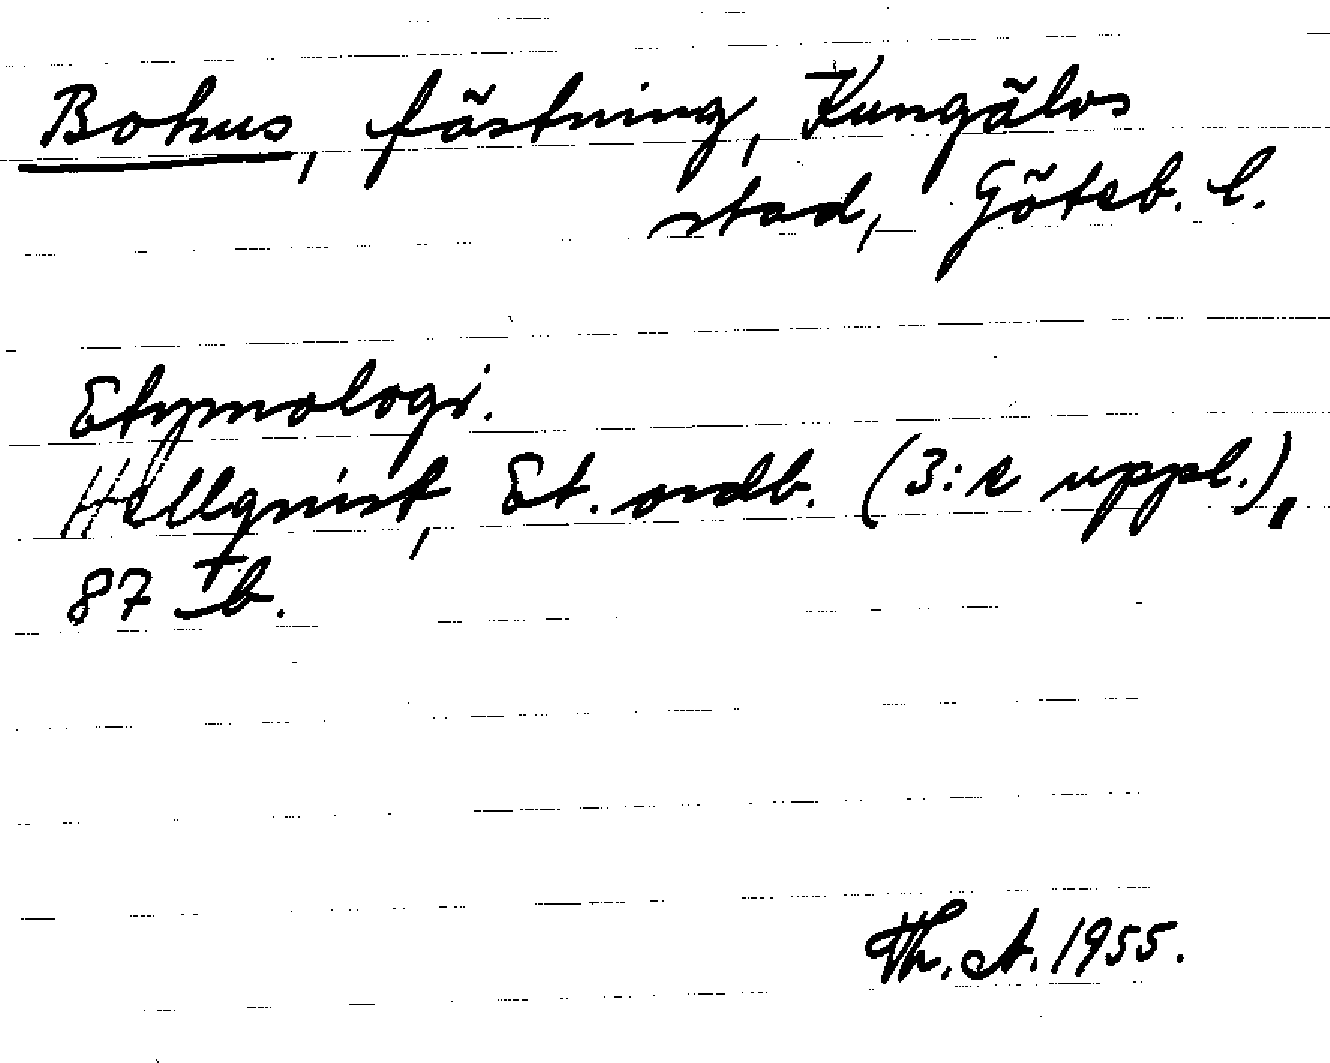 Bohus, fästning, Kungälvs
stad, Göteb. l.
Etymologi.
Hellquist, Et. ordb. (3:e uppl.),
87 I b.
Th. A. 1955.